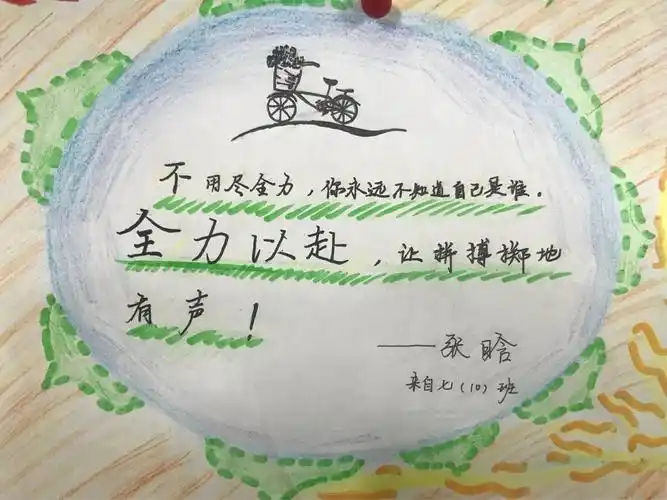 不用尽全力，你永远不知道自己是谁。
全力以赴，让拼搏掷地
有声！
——张晗
来自七（10）班